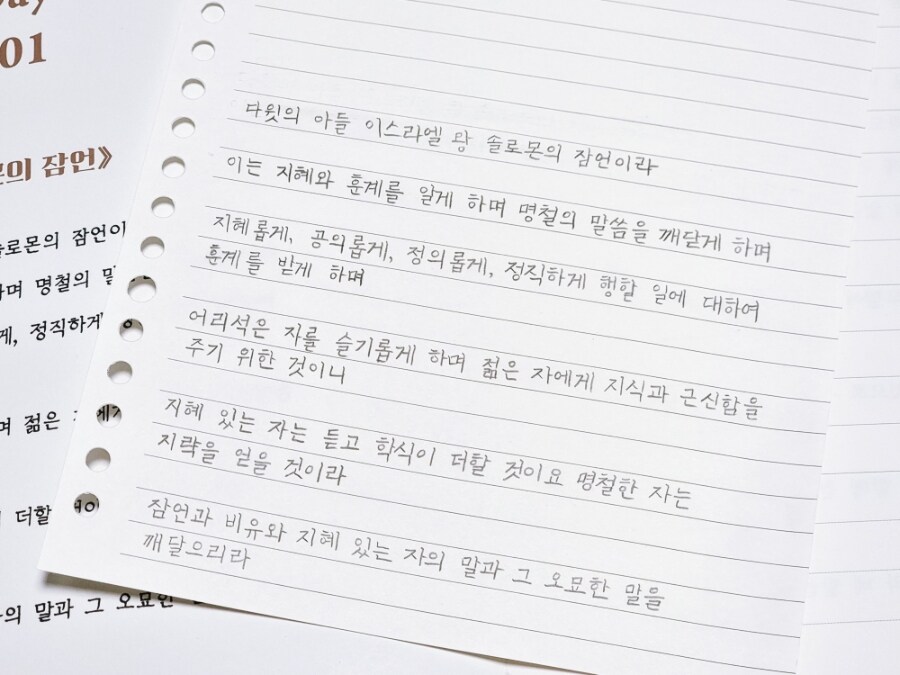 01
잠언》
다윗의 아들 이스라엘 왕 솔로몬의 잠언이라
이는 지혜와 훈계를 알게 하며 명철의 말씀을 깨닫게 하며
지혜롭게, 공의롭게, 정의롭게, 정직하게 행할 일에 대하여
훈계를 받게 하며
어리석은 자를 슬기롭게 하며 젊은 자에게 지식과 근신함을
주기 위한 것이니
지혜 있는 자는 듣고 학식이 더할 것이요 명철한 자는
지략을 얻을 것이라
잠언과 비유와 지혜 있는 자의 말과 그 오묘한 말을
깨달으리라
솔로몬의 잠언이
하며 명철의 말
게, 정직하게
며 젊은
더할
의 말과 그 오묘한